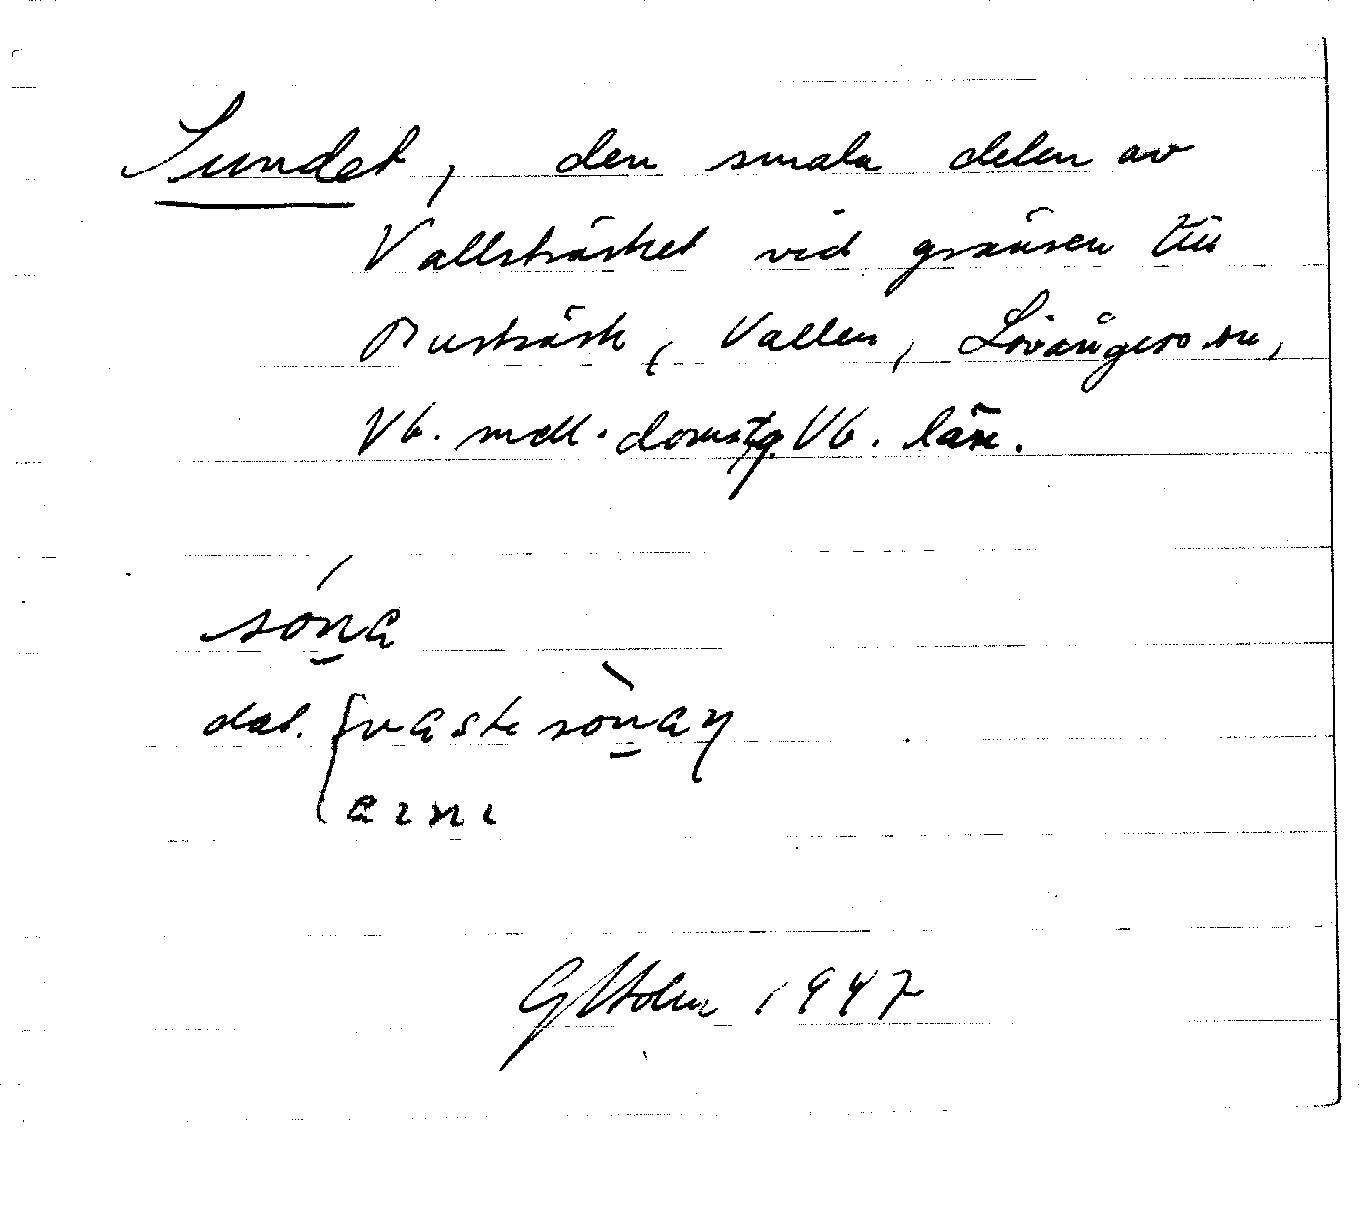 Sundet, den smala delen av
Vallsträsket vid gränsen till
Burträsk, Vallen, Lövångers sn,
Vb. mell. domsg. Vb. län.
sóna
dat.
G Holm 1947